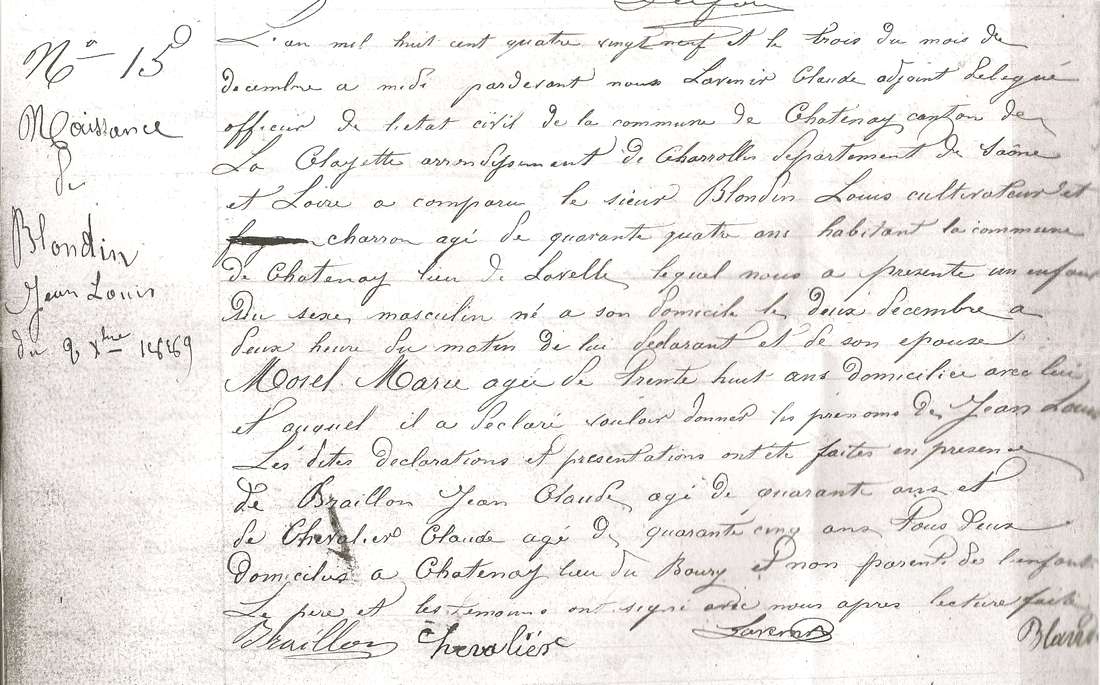 No 15
Naissance
de
Blondin
Jean Louis
du 2 Xbre 1889
L'an mil huit cent quatre vingt neuf et le trois du mois de
decembre a midi pardevant nous Lavenir Claude adjoint delegué
officier de letat civil de la commune de Chatenay canton de
La Clayette arrondissement de Charrolles departement de Saône
et Loire a comparu le sieur Blondin Louis cultivateur et
charron agé de quarante quatre ans habitant la commune
de Chatenay lieu de Lavelle lequel nous a presente un enfant
du sexe masculin né a son domicile le deux decembre a
deux heure du matin de lui declarant et de son epouse
Morel Marie agée de trente huit ans domiciliee avec lui
et auquel il a declaré vouloir donner les prénoms de Jean Louis
Les dites declarations et presentations ont été faites en presence
de Braillon Jean Claude agé de quarante ans et
de Chevalier Claude agé de quarante cinq ans tous deux
domicilies a Chatenay lieu du Bourg et non parents de l'enfant
Le pere et les temoins ont signé avec nous apres lecture faite
Braillon Chevalier Lavenir Blondin